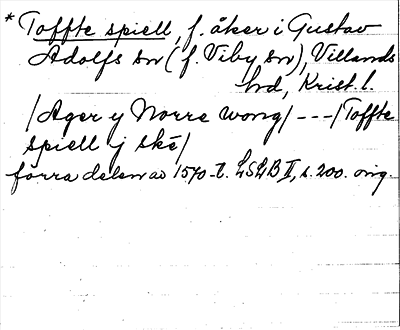 * Toffte spiell, f. åker i Gustav
Adolfs sn (f. Viby sn), Villands
hd, Krist. l.
/Ager y Norre wong/ - - - /Toffte
spiell j ske/
förra delen av 1570-t. LSLB II, s. 200. orig.